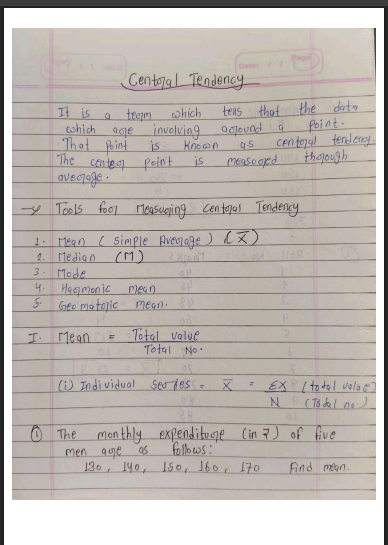 Central Tendency
It is a term which tells that the data
which are involving around a Point.
That Point is Known as central tendency.
The center point is measured through
average.
→ Tools for Measuring Central Tendency
1. Mean ( Simple Average ) (X̅)
2. Median (M)
3. Mode
4. Harmonic mean
5. Geomatric mean.
I. Mean = Total value
Total No.
(i) Individual Series = X̅ = ΣX (total value)
N (Total no.)
① The monthly expenditure (in ₹) of five
men are as follows:
130, 140, 150, 160, 170 Find mean.